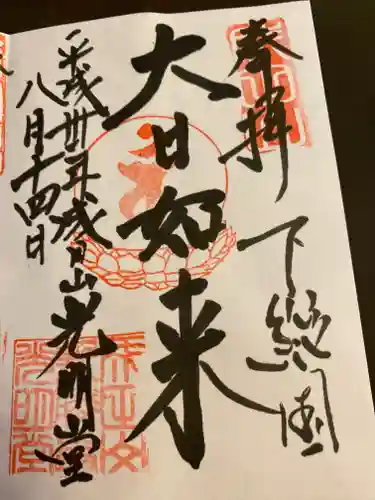 奉拝 下総国
大日如来
平成卅年 成田山 光明堂
八月十四日